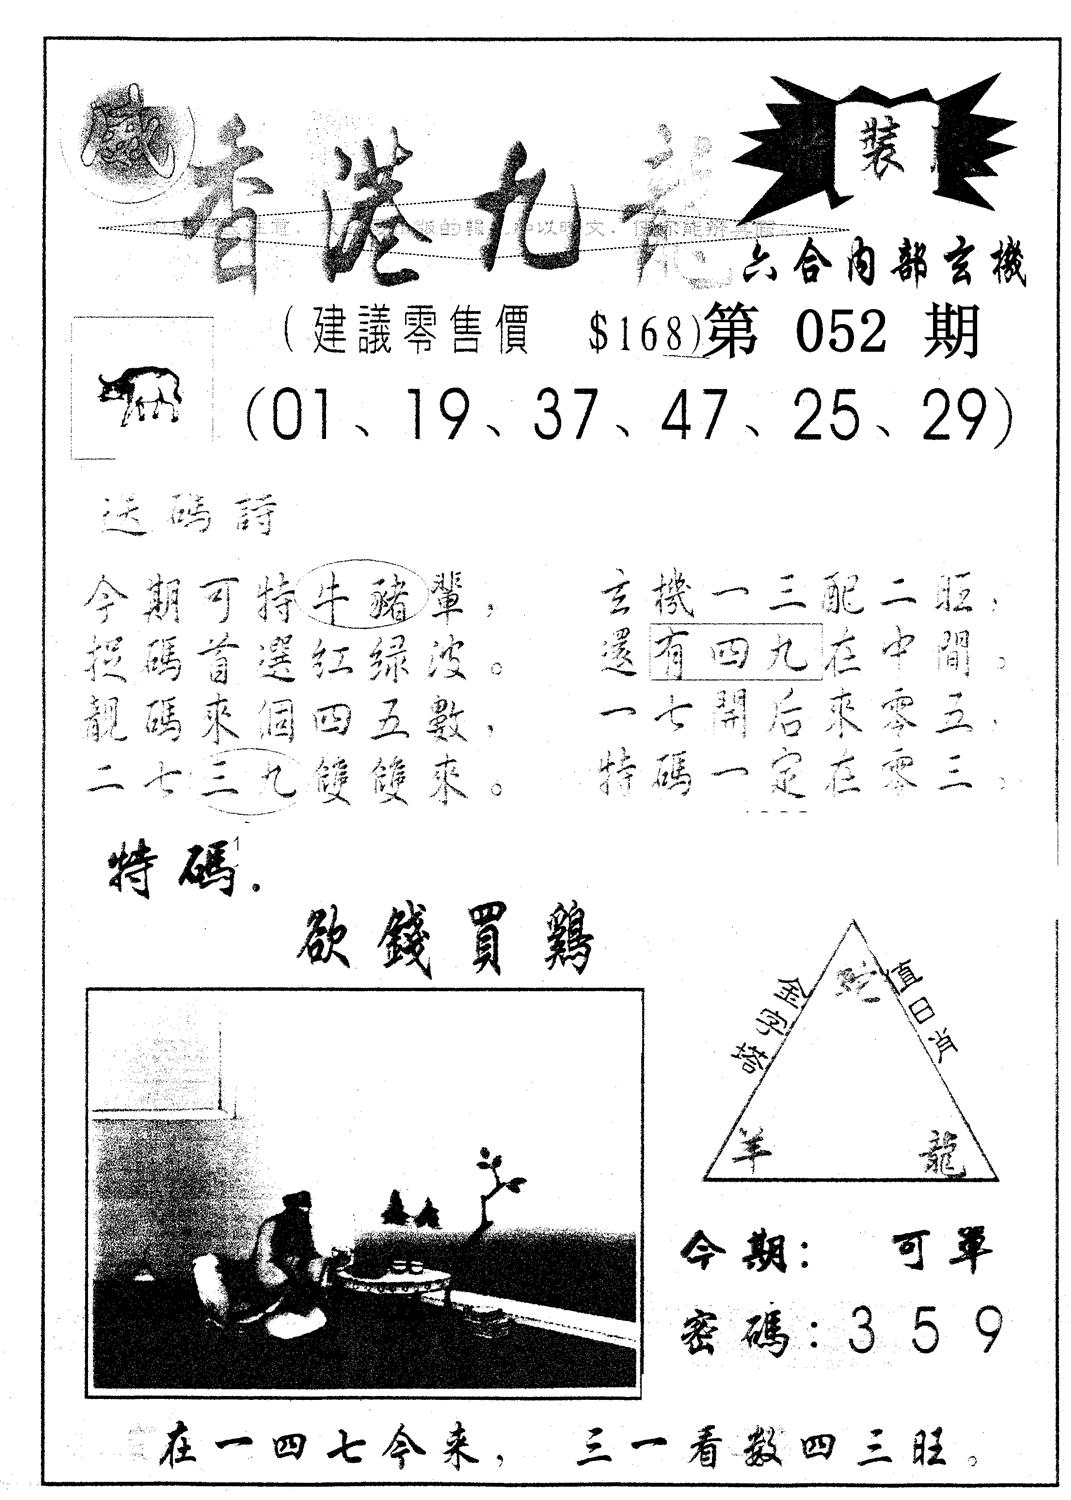 香港九龍
裝
六合內部玄機
(建議零售價 $168)第 052 期
(01、19、37、47、25、29)
送碼詩
今期可特牛豬輩，
捉碼首選紅绿波。
靚碼來個四五數，
二七三九雙雙來。
玄機一三配二旺，
還有四九在中間。
一七開后來零五，
特碼一定在零三。
特碼.
欲錢買鷄
金字塔
值日肖
蛇
羊
龍
今期： 可單
密碼：3 5 9
在一四七今来，三一看数四三旺。